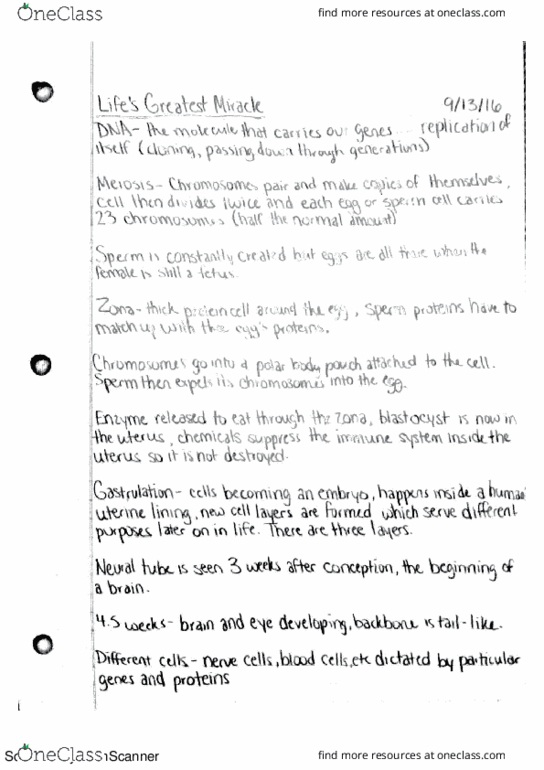 OneClass
find more resources at oneclass.com
Life's Greatest Miracle 9/13/16
DNA- the molecule that carries our genes ... replication of
itself (cloning, passing down through generations)
Meiosis- Chromosomes pair and make copies of themselves,
cell then divides twice and each egg or sperm cell carries
23 chromosomes (half the normal amount)
Sperm is constantly created but eggs are all there when the
female is still a fetus.
Zona- thick protein cell around the egg, sperm proteins have to
match up with the egg's proteins.
Chromosomes go into a polar body pouch attached to the cell.
Sperm then expels its chromosomes into the egg.
Enzyme released to eat through the zona, blastocyst is now in
the uterus, chemicals suppress the immune system inside the
uterus so it is not destroyed.
Gastrulation- cells becoming an embryo, happens inside a human
uterine lining, new cell layers are formed which serve different
purposes later on in life. There are three layers.
Neural tube is seen 3 weeks after conception, the beginning of
a brain.
4.5 weeks- brain and eye developing, backbone is tail-like.
Different cells- nerve cells, blood cells, etc dictated by particular
genes and proteins
OneClass Scanner
find more resources at oneclass.com